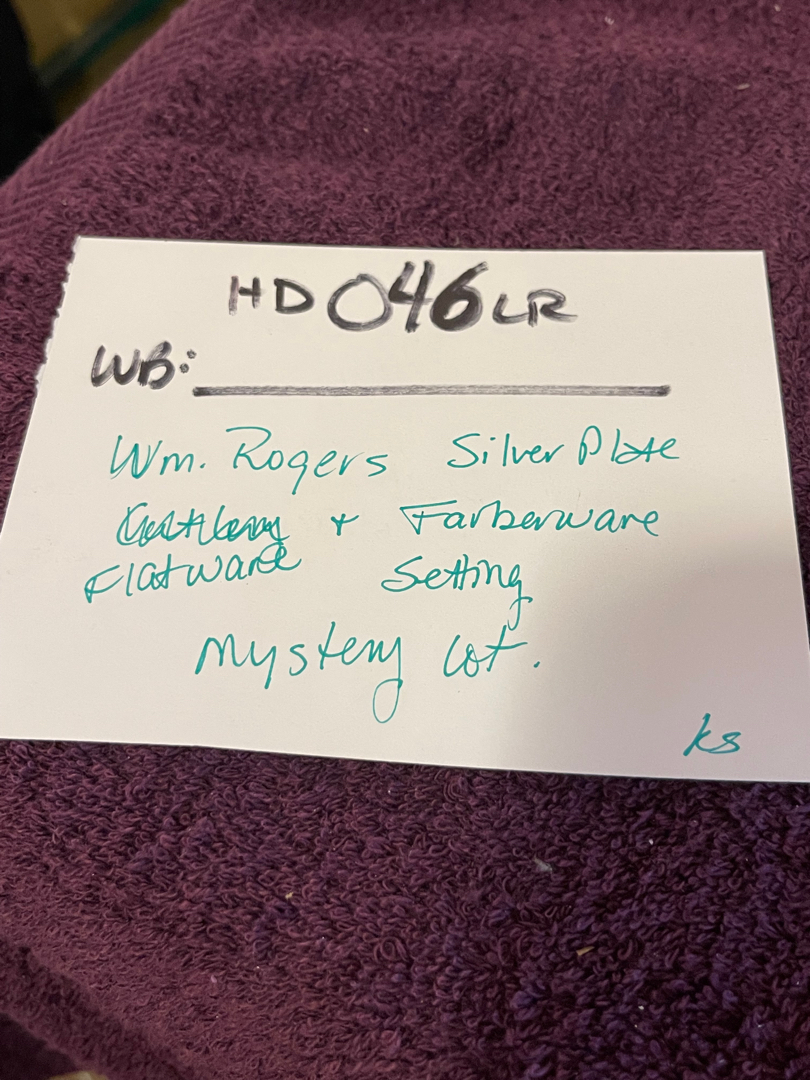 HD 046 LR
WB:
Wm. Rogers Silver Plate
+ Farberware
Flatware Setting
Mystery Lot.
ks